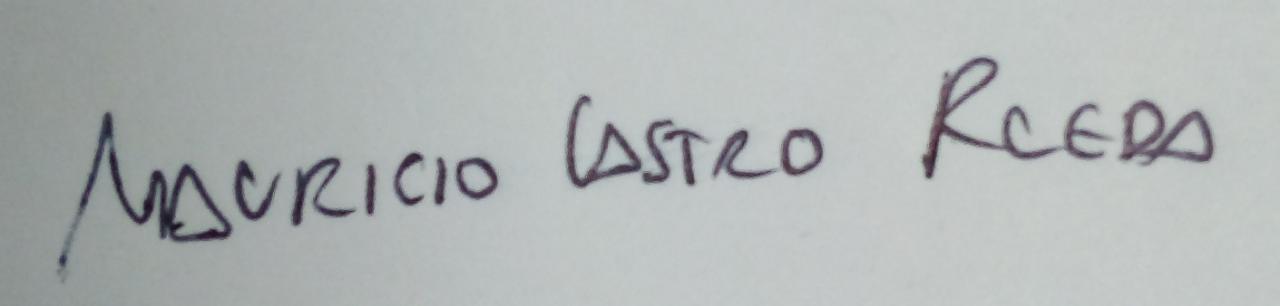 MAURICIO CASTRO RUEDA